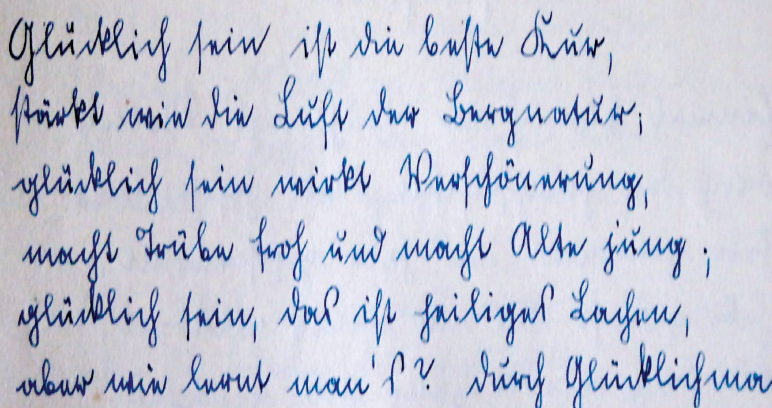 Glücklich sein ist die beste Kur,
stärkt wie die Luft der Bergnatur;
glücklich sein wirkt Verschönerung,
macht Trübe froh und macht Alte jung;
glücklich sein, das ist heiliges Lachen,
aber wie lernt man's? durch Glücklichma